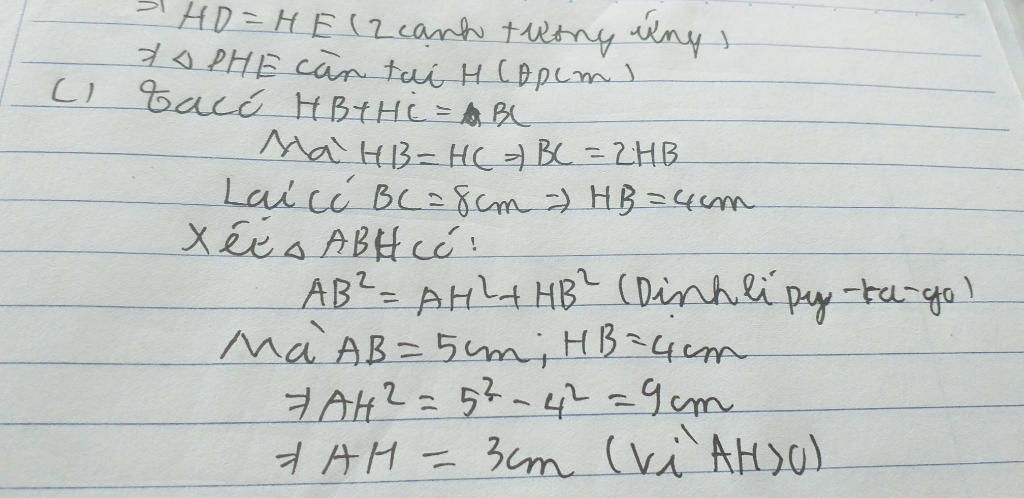 ⇒ HD = HE (2 cạnh tương ứng)
⇒ △ DHE cân tại H (Đpcm)
c) Ta có HB + HC = BC
Mà HB = HC ⇒ BC = 2HB
Lại có BC = 8cm ⇒ HB = 4cm
Xét △ ABH có:
AB² = AH² + HB² (Định lí py-ta-go)
Mà AB = 5cm; HB = 4cm
⇒ AH² = 5² - 4² = 9cm
⇒ AH = 3cm (vì AH > 0)